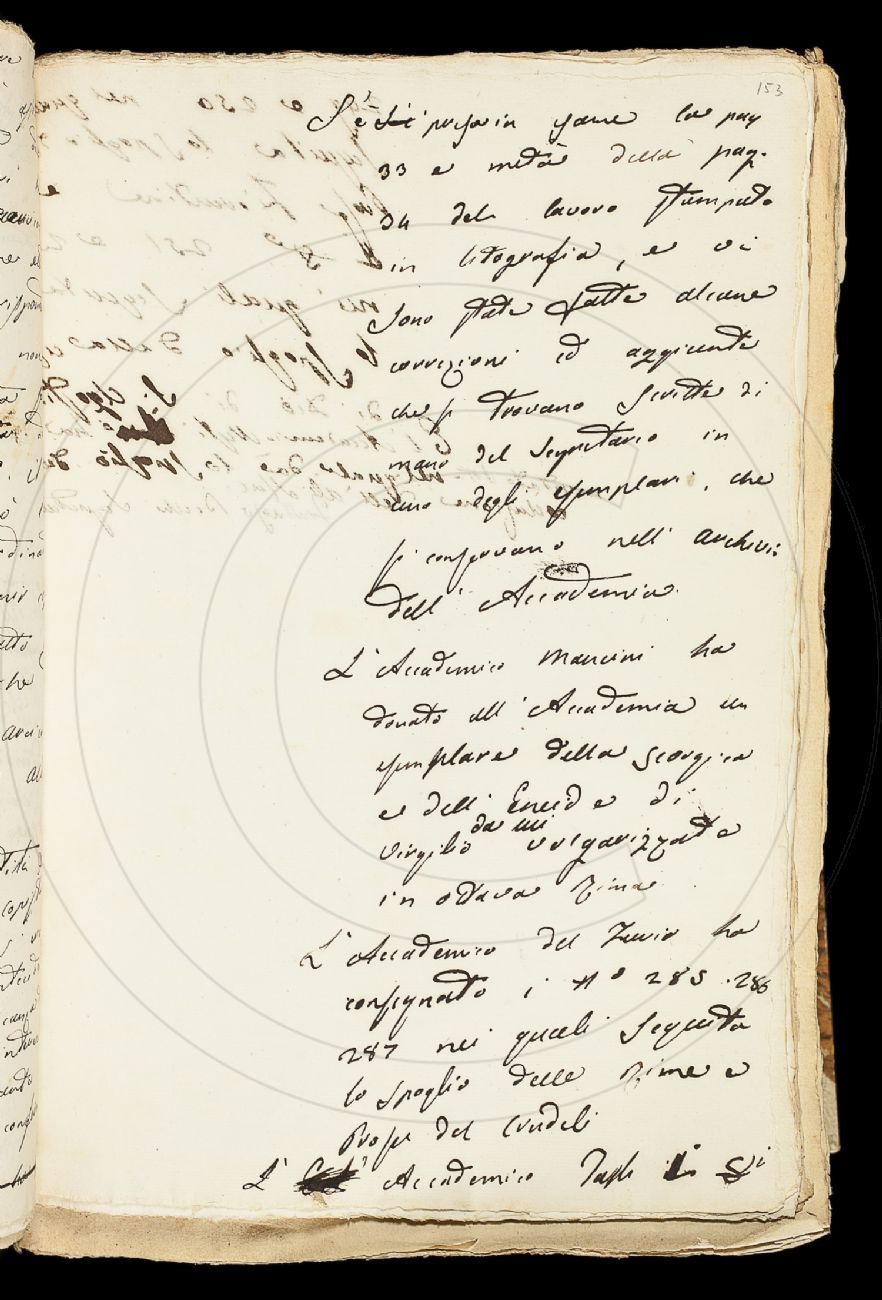 153
S'è presa in esame la pag
33 e metà della pag.
34 del lavoro stampato
in litografia, e vi
sono state fatte alcune
correzioni ed aggiunte
che si trovano scritte di
mano del Segretario in
uno degli esemplari, che
si conservano nell' Archivio
dell' Accademia.
L' Accademico Mancini ha
donato all' Accademia un
esemplare della Georgica
e dell' Eneide di
Virgilio da lui volgarizzate
in ottava rima
L' Accademico del Furia ha
consegnato i Nº 285. 286
287 nei quali seguita
lo spoglio delle Rime e
Prose del Crudeli
L' Accademico